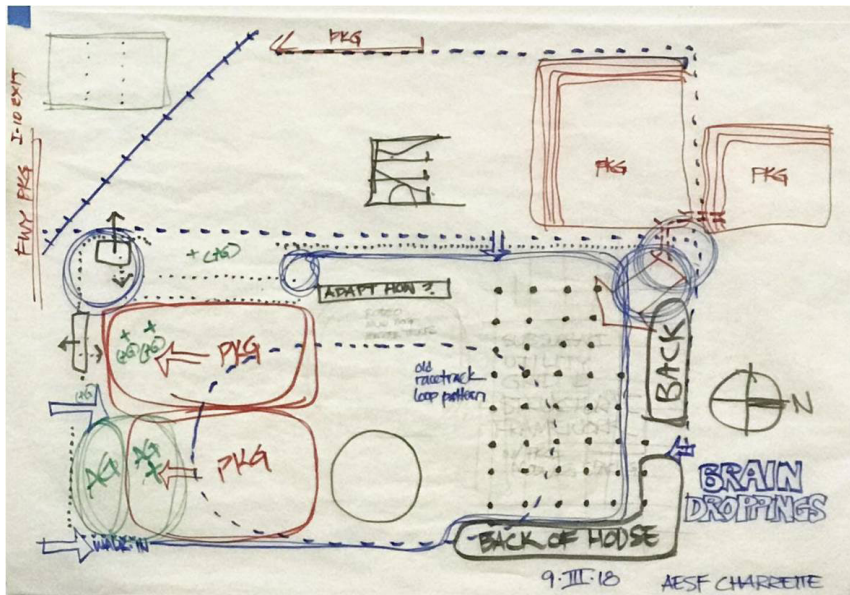 PKG
I-10 EXIT
FWY PKG
PKG
PKG
ADAPT HOW?
PKG
old
racetrack
loop pattern
BACK
N
PKG
AG
AG
BRAIN
DROPPINGS
WALK-IN
BACK OF HOUSE
9·III·18
AESF CHARRETTE